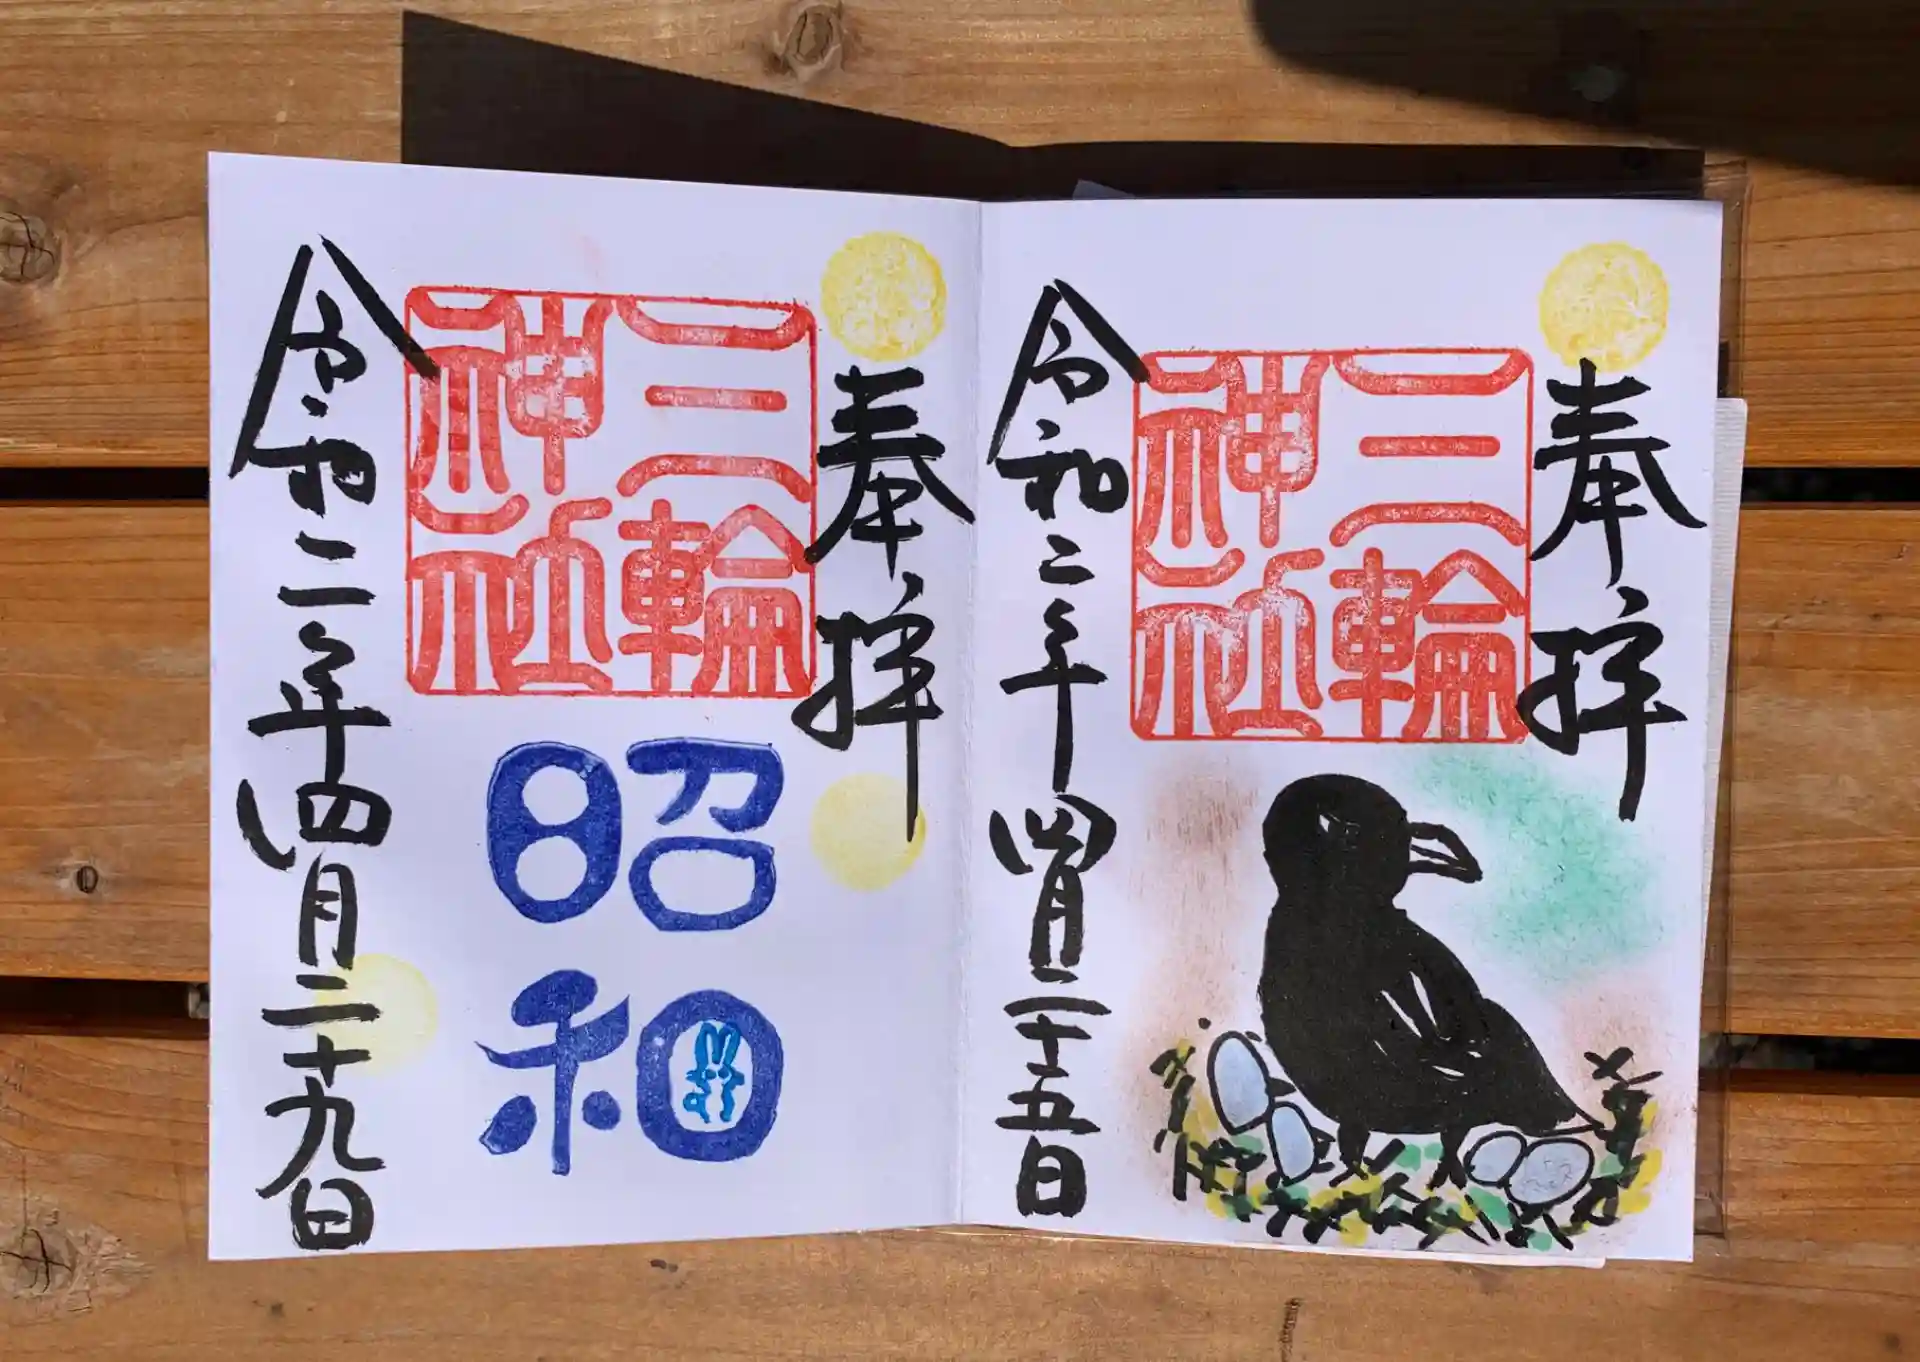 奉拝
三輪
神社
令和二年四月二十五日
奉拝
三輪
神社
昭和
令和二年四月二十九日